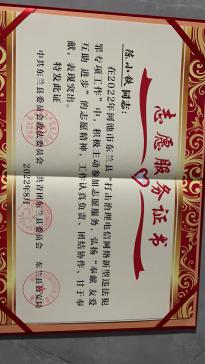 志愿服务证书
陈小秋同志：
在2022年河池市东兰县“打击治理电信网络新型违法犯
罪专项工作”中，积极主动参加志愿服务，弘扬“奉献 友爱
互助 进步”的志愿精神，工作认真负责、团结协作、甘于奉
献，表现突出。
特发此证
中共东兰县委员会政法委员会 共青团东兰县委员会 东兰县公安局
2022年8月